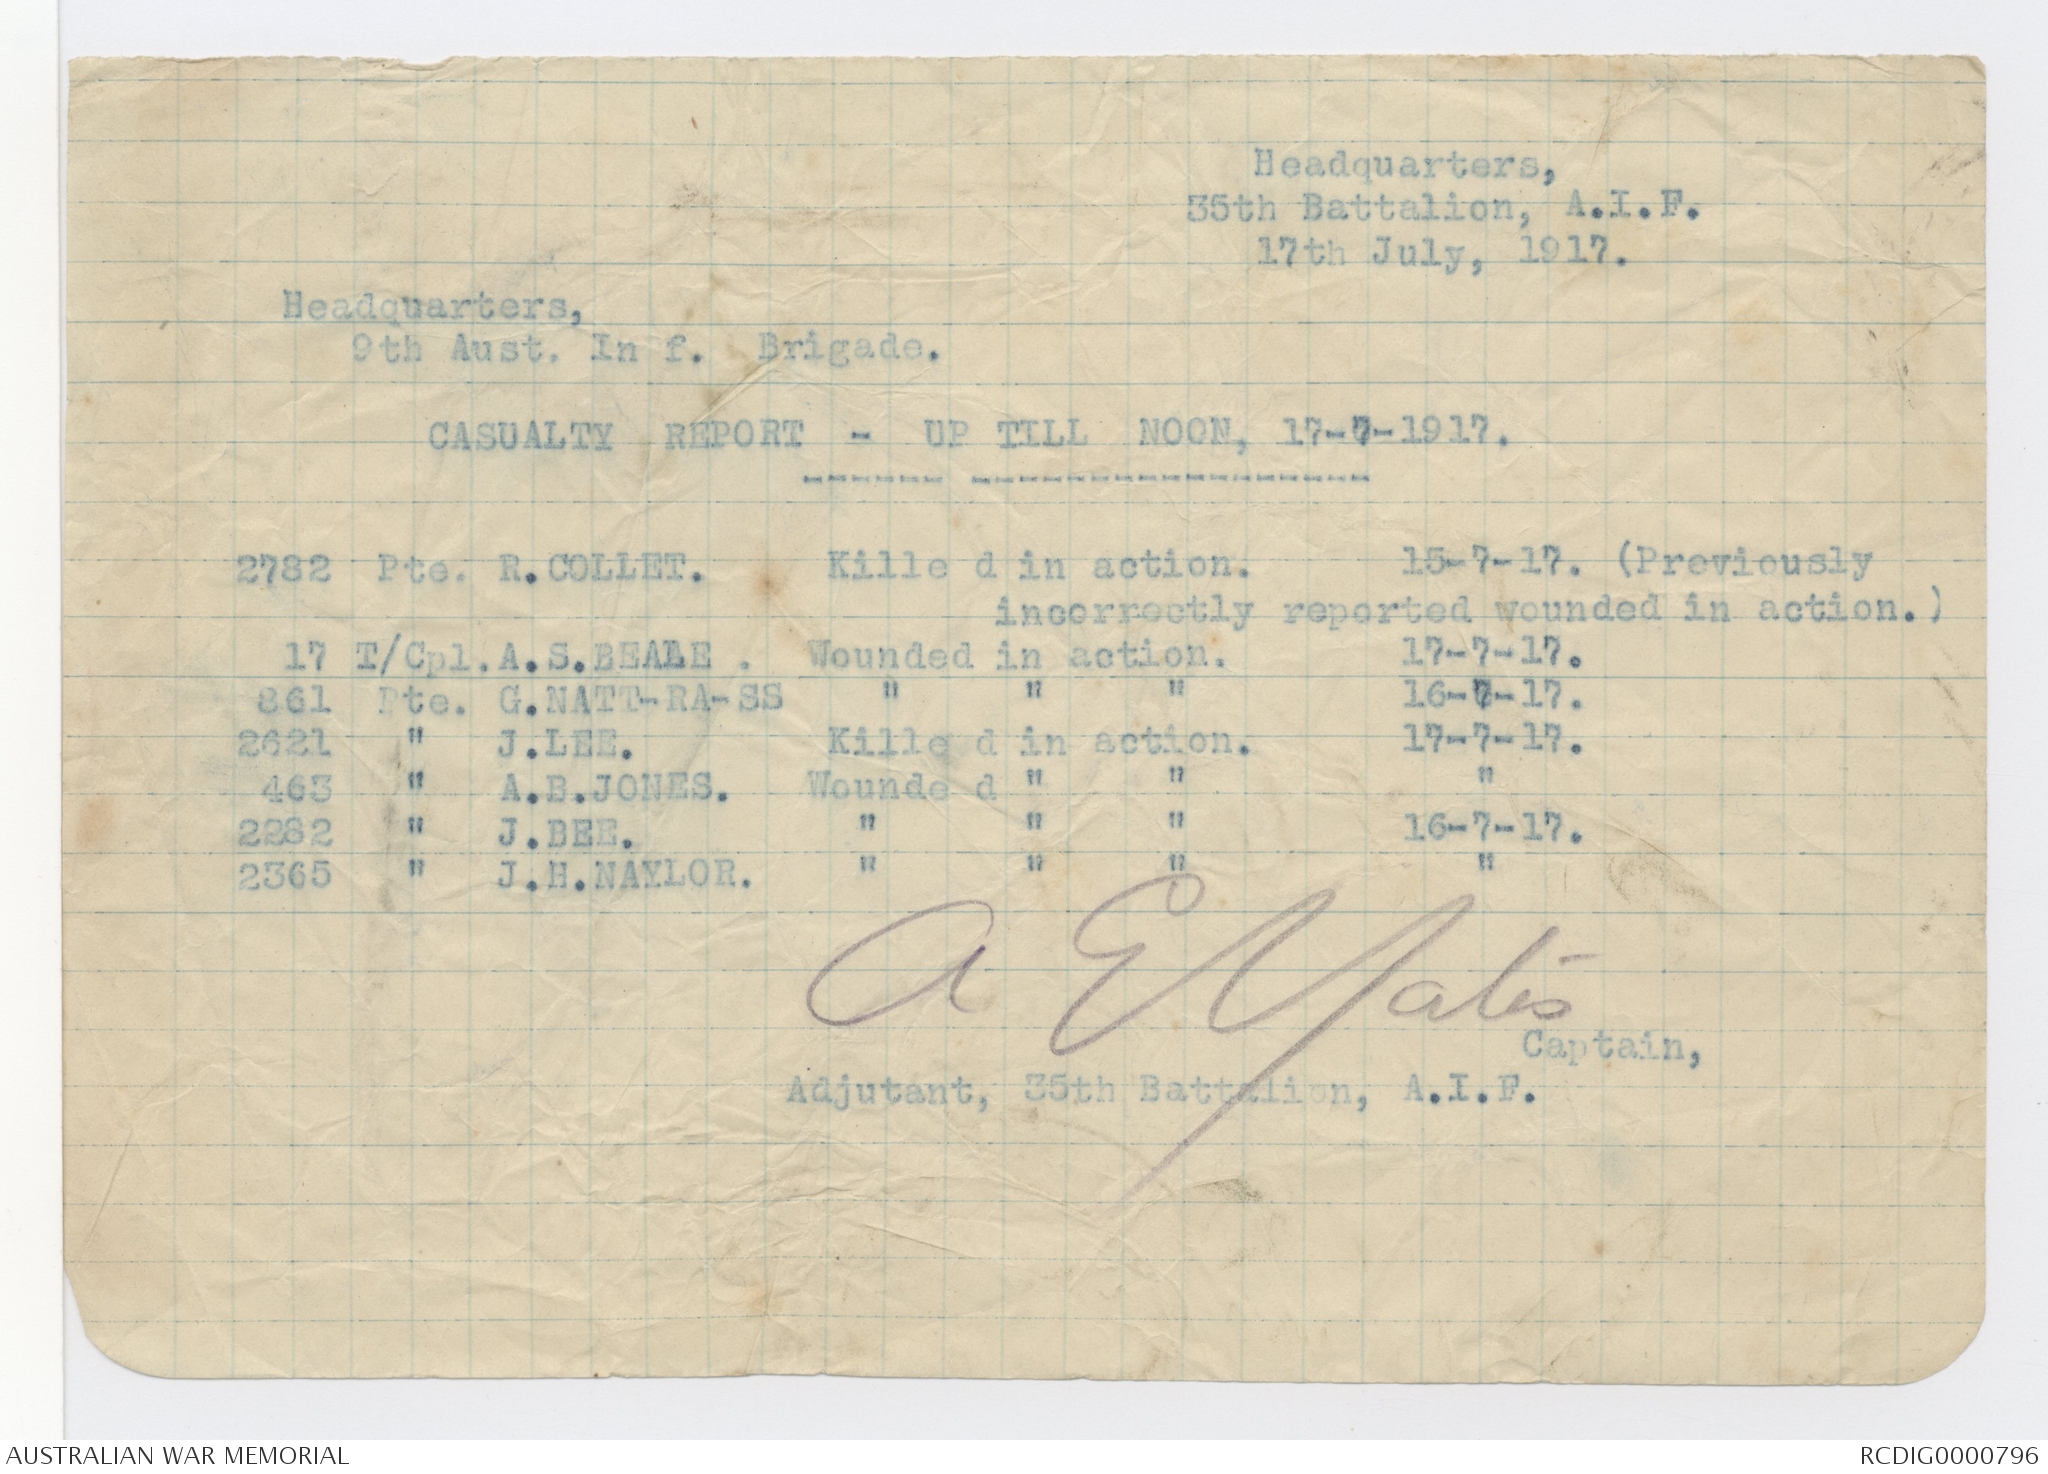 Headquarters,
35th Battalion, A.I.F.
17th July, 1917.
Headquarters,
9th Aust. In f. Brigade.
CASUALTY REPORT - UP TILL NOON, 17-7-1917.
2782 Pte. R.COLLET. Kille d in action. 15-7-17. (Previously
incorrectly reported wounded in action.)
17 T/Cpl. A.S.BEALE . Wounded in action. 17-7-17.
861 Pte. G.NATT-RA-SS " " " 16-7-17.
2621 " J.LEE. Kille d in action. 17-7-17.
463 " A.B.JONES. Wounde d " " "
2282 " J.BEE. " " " 16-7-17.
2365 " J.H.NAYLOR. " " " "
A E Yates
Captain,
Adjutant, 35th Battalion, A.I.F.
AUSTRALIAN WAR MEMORIAL RCDIG0000796